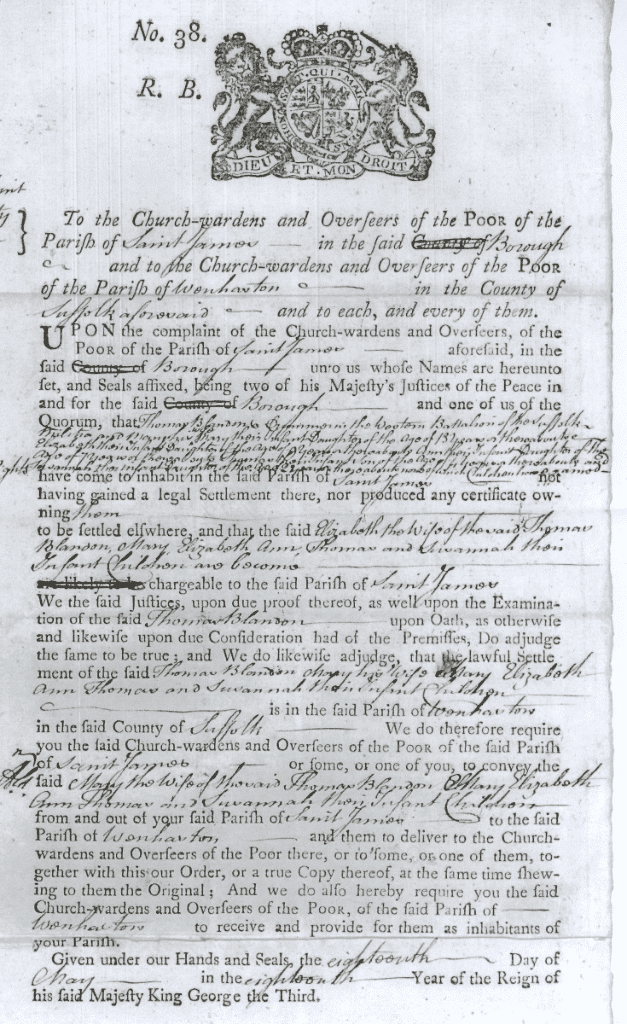 No. 38.
R. B.
QUI MAL
DIEU ET MON DROIT
}
To the Church-wardens and Overseers of the POOR of the
Parish of Saint James — in the said County of Borough
and to the Church-wardens and Overseers of the POOR
of the Parish of Wenhaston — in the County of
Suffolk aforesaid — and to each, and every of them.
UPON the complaint of the Church-wardens and Overseers, of the
POOR of the Parish of Saint James — aforesaid, in the
said County of Borough — unto us whose Names are hereunto
set, and Seals affixed, being two of his Majesty's Justices of the Peace in
and for the said County of Borough — and one of us of the
Quorum, that Thomas Blandon a in the Western Battalion of the Suffolk
Militia and Mary their Infant Daughter of the Age of
Elizabeth their Infant Daughter of the Age of Ann their Infant Daughter of the
Age of Years
Susannah their Infant Daughter of the Age
have come to inhabit in the said Parish of Saint James not
having gained a legal Settlement there, nor produced any certificate ow-
ning them
to be settled elsewhere, and that the said Elizabeth the Wife of the said Thomas
Blandon, Mary, Elizabeth Ann, Thomas and Susannah their
Infant Children are become
are likely to be chargeable to the said Parish of Saint James
We the said Justices, upon due proof thereof, as well upon the Examina-
tion of the said Thomas Blandon — upon Oath, as otherwise
and likewise upon due Consideration had of the Premisses, Do adjudge
the same to be true; and We do likewise adjudge, that the lawful Settle
ment of the said Thomas Blandon Mary his Wife Mary Elizabeth
Ann Thomas and Susannah their Infant Children
— is in the said Parish of Wenhaston
in the said County of Suffolk — We do therefore require
you the said Church-wardens and Overseers of the POOR of the said Parish
of Saint James — or some, or one of you, to convey the
said Mary the Wife of the said Thomas Blandon Mary Elizabeth
Ann Thomas and Susannah their Infant Children
from and out of your said Parish of Saint James — to the said
Parish of Wenhaston — and them to deliver to the Church-
wardens and Overseers of the Poor there, or to some, or one of them, to-
gether with this our Order, or a true Copy thereof, at the same time shew-
ing to them the Original; And we do also hereby require you the said
Church-wardens and Overseers of the POOR, of the said Parish of —
Wenhaston to receive and provide for them as inhabitants of
your Parish.
Given under our Hands and Seals, the eighteenth — Day of
May — in the eighteenth — Year of the Reign of
his said Majesty King George the Third.